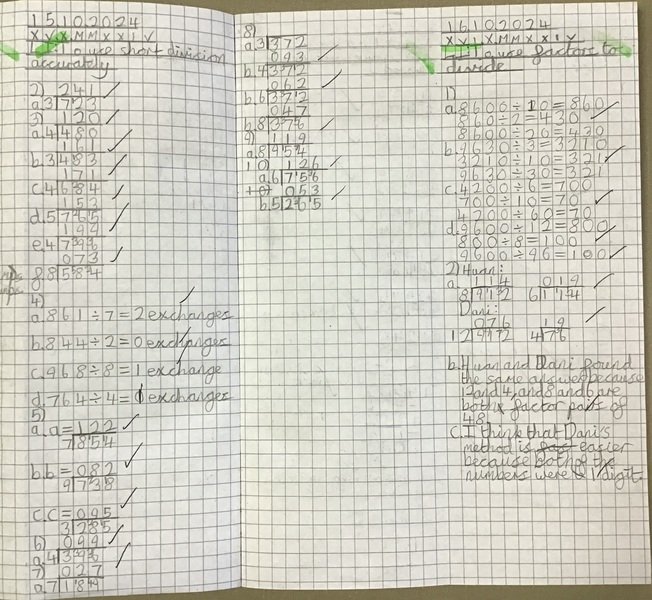 15.10.2024
XV.X.MMXXIV
use short division
accurately
2) 241
a.3 723
3) 120
a.4 480
161
b.3 483
171
c.4 684
153
d.5 765
199
e.4 796
073
f.8 584
4)
a.861÷7=2 exchanges
b.844÷2=0 exchanges
c.968÷8=1 exchange
d.764÷4= exchanges
5)
a.a=122
7 854
b.b=082
9 738
c.c=095
3 285
6) 099
a.4 396
7) 027
a.7 189
8)
a.3 372
093
b.4 372
062
b.6 372
047
b.8 376
9) 119
a.8 954
10) 126
a.6 756
053
b.5 265
16.10.2024
XVI.X.MMXXIV
use factors to
divide
1)
a.8600÷10=860
860÷2=430
8600÷20=430
b.9630÷3=3210
3210÷10=321
9630÷30=321
c.4200÷6=700
700÷10=70
4200÷60=70
d.9600÷12=800
800÷8=100
9600÷96=100
2) Huan:
a. 114 019
8 912 6 114
Dani:
076 19
12 912 4 76
b.Huan and Dani found
the same answer because
12 and 4, and 8 and 6 are
both factor pairs of
48.
c.I think that Dani's
method is easier
because both of the
numbers were 1 digit.